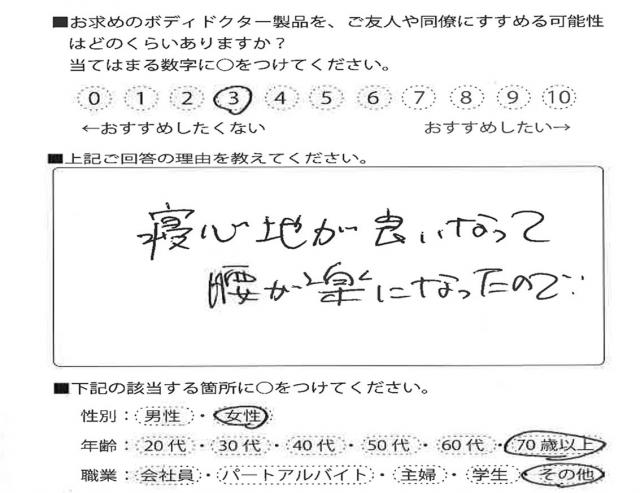 ■お求めのボディドクター製品を、ご友人や同僚にすすめる可能性
はどのくらいありますか？
当てはまる数字に○をつけてください。
0 1 2 3 4 5 6 7 8 9 10
←おすすめしたくない おすすめしたい→
■上記ご回答の理由を教えてください。
寝心地が良いなって
腰が楽になったので
■下記の該当する箇所に○をつけてください。
性別：男性・女性
年齢：20代・30代・40代・50代・60代・70歳以上
職業：会社員・パートアルバイト・主婦・学生・その他